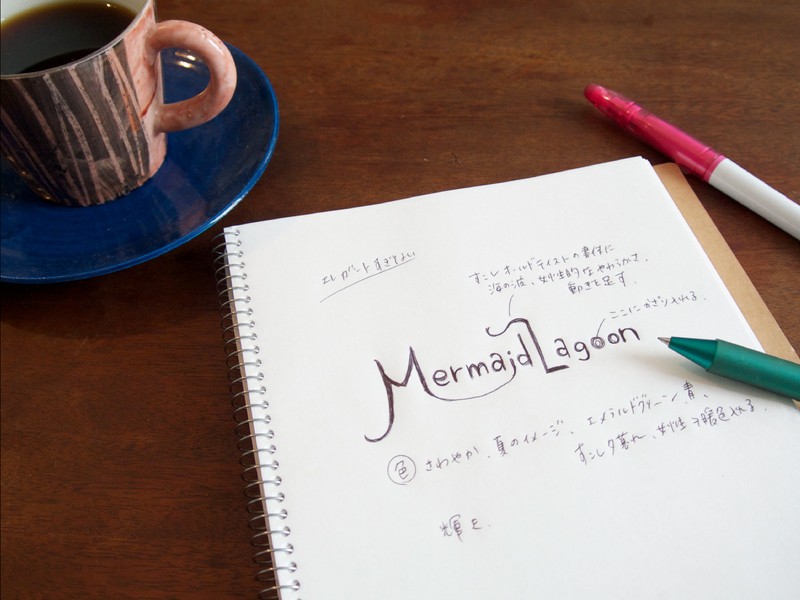 エレガントすぎない
すこしオールドテイストの書体に
海の波、女性的なやわらかさ、
動きを足す.
ここにかざり入れる.
Mermaid Lagoon
色 さわやか、夏のイメージ、エメラルドグリーン、青、
すこし夕暮れ、女性→暖色入れる.
輝き.